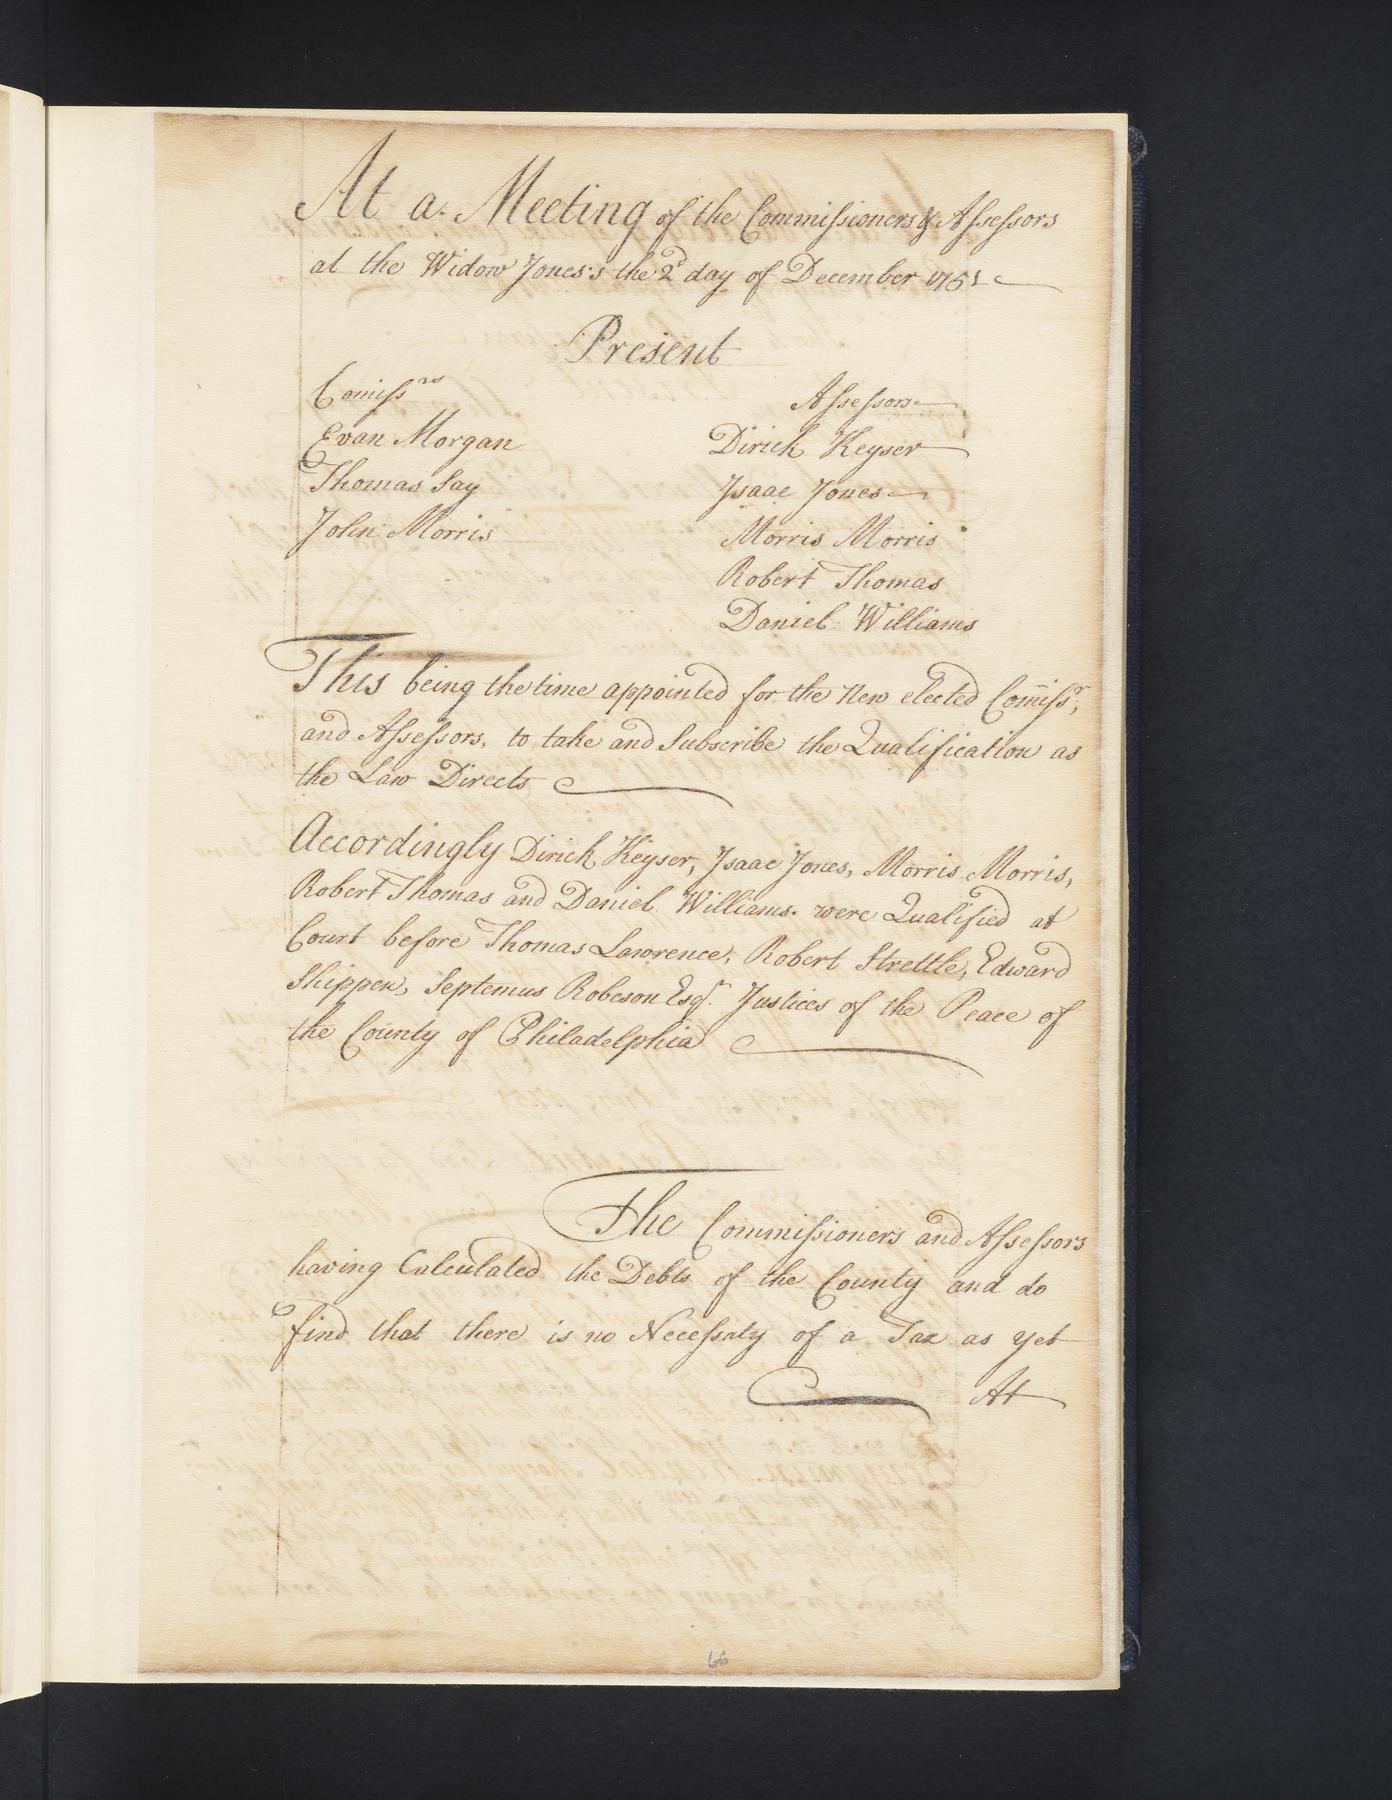 At a Meeting of the Commissioners & Assessors
at the Widow Jones's the 2d day of December 1751
Present
Comissrs
Assessors
Evan Morgan
Dirick Keyser
Thomas Say
Isaac Jones
John Morris
Morris Morris
Robert Thomas
Daniel Williams
This being the time appointed for the New elected Comissr,
and Assessors, to take and Subscribe the Qualification as
the Law Directs
Accordingly Dirick Keyser, Isaac Jones, Morris Morris,
Robert Thomas and Daniel Williams. were Qualified at
Court before Thomas Lawrence, Robert Strettle, Edward
Shippen, Septemus Robeson Esqr. Justices of the Peace of
the County of Philadelphia
The Commissioners and Assessors
having Calculated the Debts of the County and do
find that there is no Necessaty of a Tax as yet
At
66